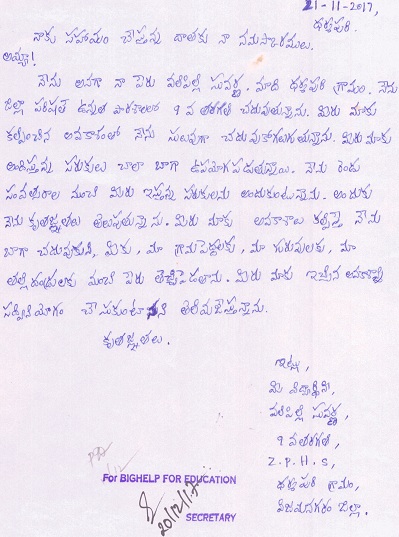 21-11-2017,
ధర్మపురి.
నాకు సహాయం చేస్తున్న దాతకు నా నమస్కారములు.
అయ్యా!
నేను అనగా నా పేరు పతివిల్లి సువర్ణ. మాది ధర్మపురి గ్రామం. నేను
జిల్లా పరిషత్ ఉన్నత పాఠశాలలో 9 వ తరగతి చదువుతున్నాను. మీరు మాకు
కల్పించిన అవకాశంలో నేను సులువుగా చదువుకోగలుగుతున్నాను. మీరు మాకు
అందిస్తున్న సరుకులు చాలా బాగా ఉపయోగపడుతున్నాయి. నేను రెండు
సంవత్సరాల నుంచి మీరు ఇస్తున్న సరుకులను అందుకుంటున్నాను. అందుకు
నేను కృతజ్ఞతలు తెలుపుతున్నాను. మీరు మాకు అవకాశాలు కల్పిస్తే నేను
బాగా చదువుకుని, మీకు, మా గ్రామపెద్దలకు, మా గురువులకు, మా
తల్లిదండ్రులకు మంచి పేరు తెచ్చిపెడతాను. మీరు మాకు ఇచ్చిన అవకాశాన్ని
సద్వినియోగం చేసుకుంటానని తెలియజేస్తున్నాను.
కృతజ్ఞతలు.
ఇట్లు,
మీ విద్యార్థిని,
సువర్ణ,
9 వ తరగతి,
Z.P.H.S,
ధర్మపురి గ్రామం,
విజయనగరం జిల్లా.
For BIGHELP FOR EDUCATION
20/12/17
SECRETARY